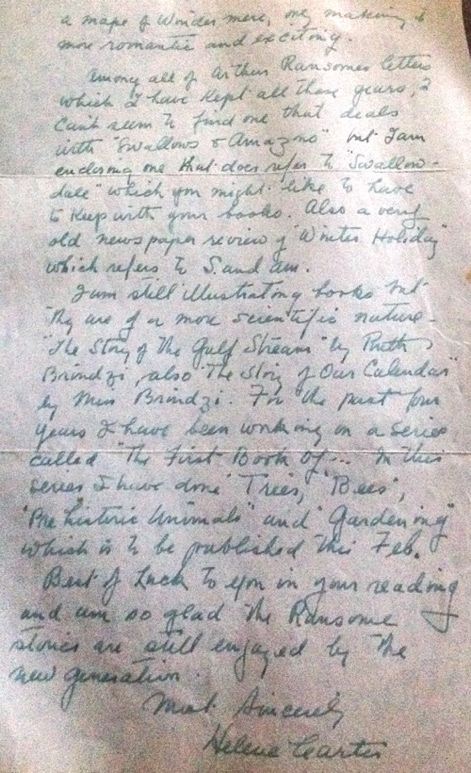 a map of Windermere, only making it
more romantic and exciting.
Among all of Arthur Ransomes letters
which I have kept all these years, I
can't seem to find one that deals
with "Swallows & Amazons" but I am
enclosing one that does refer to "Swallow-
dale" which you might like to have
to keep with your books. Also a very
old newspaper review of "Winter Holiday"
which refers to S. and Am.
I am still illustrating books but
they are of a more scientific nature -
"The Story of The Gulf Stream" by Ruth
Brindzi, also "The Story of Our Calendar"
by Miss Brindzi. For the past four
years I have been working on a series
called "The First Book of... In this
series I have done "Trees," "Bees",
"Prehistoric Animals" and "Gardening"
which is to be published this Feb.
Best of Luck to you in your reading
and am so glad the Ransome
stories are still enjoyed by the
new generation.
Most Sincerely
Helene Carter